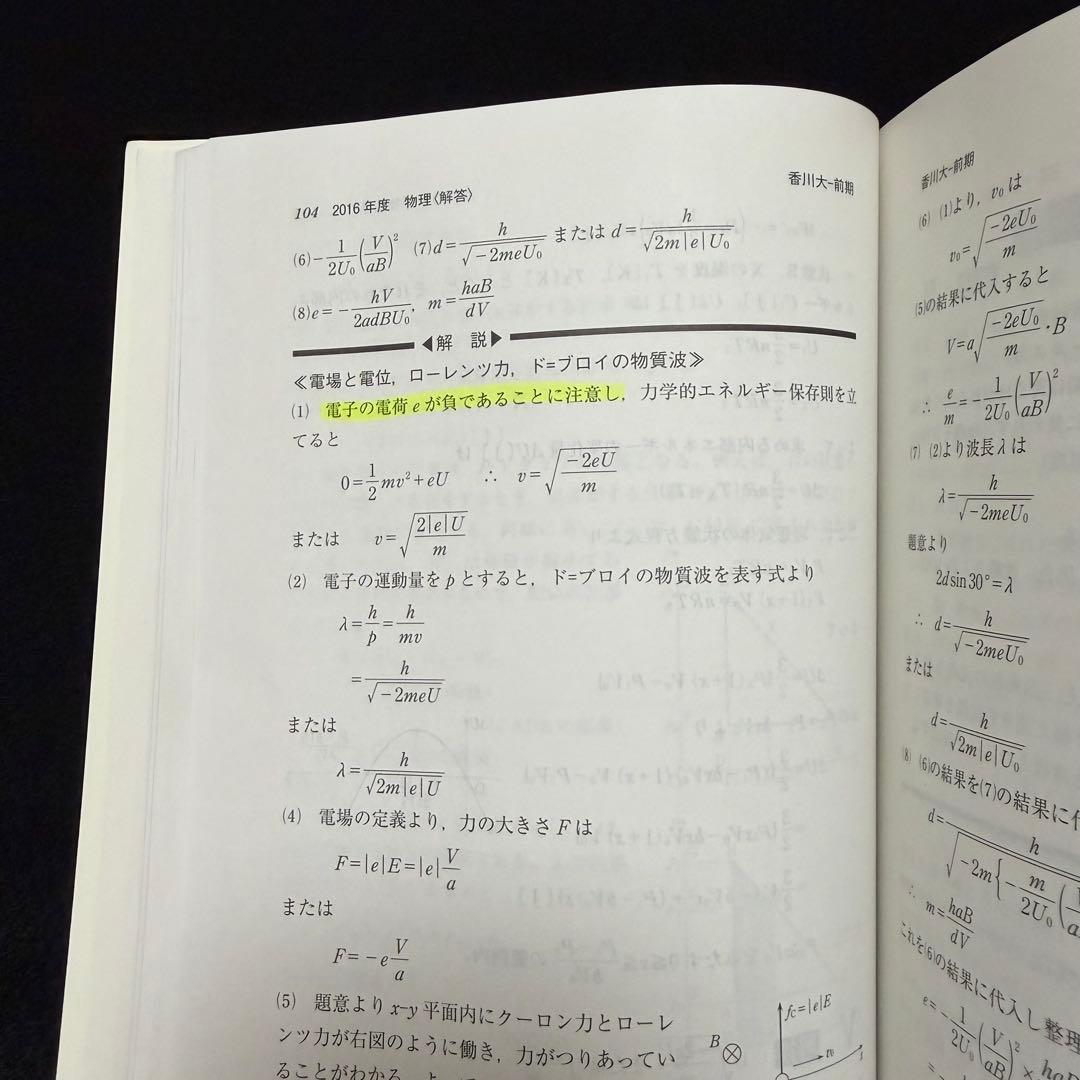 104 2016年度 物理〈解答〉 香川大-前期
(6) −1/(2U₀)(V/(aB))² (7) d=h/√(−2meU₀) または d=h/√(2m|e|U₀)
(8) e=−hV/(2adBU₀), m=haB/(dV)
◀解 説▶
≪電場と電位,ローレンツ力,ド=ブロイの物質波≫
(1) 電子の電荷 e が負であることに注意し,力学的エネルギー保存則を立
てると
0=1/2 mv²+eU ∴ v=√(−2eU/m)
または v=√(2|e|U/m)
(2) 電子の運動量を p とすると,ド=ブロイの物質波を表す式より
λ=h/p=h/(mv)
=h/√(−2meU)
または
λ=h/√(2m|e|U)
(4) 電場の定義より,力の大きさ F は
F=|e|E=|e|V/a
または
F=−e V/a
(5) 題意より x-y 平面内にクーロン力とローレ
ンツ力が右図のように働き,力がつりあってい
ることがわかる。よ
B
fc=|e|E
v₀
香川大-前期
(6) (1)より,v₀ は
v₀=√(−2eU₀/m)
(5)の結果に代入すると
V=a√(−2eU₀/m)・B
∴ e/m=−1/(2U₀)(V/(aB))²
(7) (2)より波長 λ は
λ=h/√(−2meU₀)
題意より
2d sin30°=λ
∴ d=h/√(−2meU₀)
または
d=h/√(2m|e|U₀)
(8) (6)の結果を(7)の結果に
d=h/√(−2m{−m/(2U₀)(
∴ m=haB/(dV)
これを(6)の結果に代入し整理
e=−1/(2U₀)(V/(aB))²×